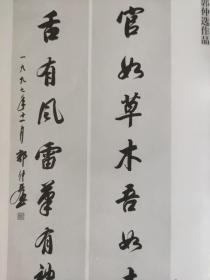 郭仲选作品
官如草木吾如土
舌有风雷笔有神
一九九七年十一月 郭仲选